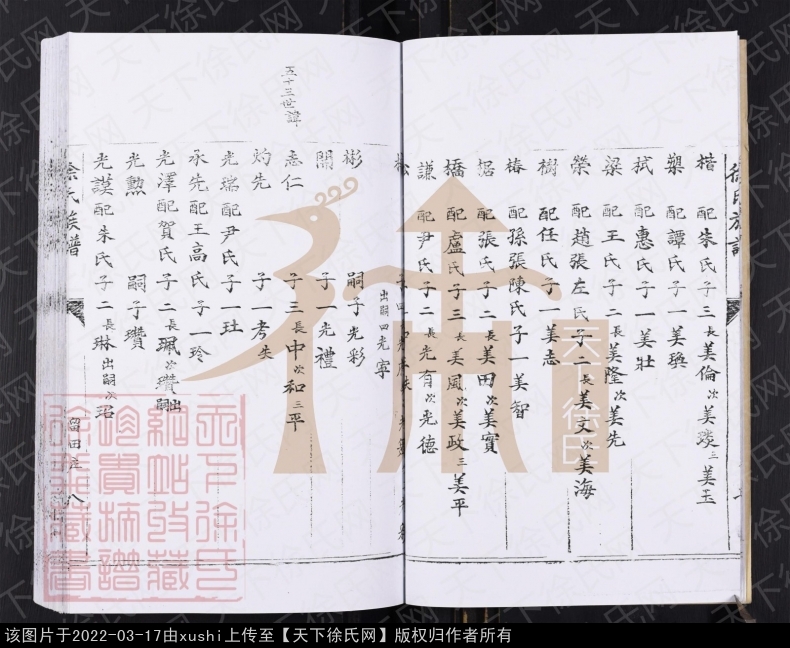 楷 配朱氏子三長美倫次美琰三美玉
槊 配譚氏子一美璵
栻 配惠氏子一美壯
梁 配王氏子二長美隆次美先
榮 配趙張左氏子二長美文次美海
樹 配任氏子一美志
椿 配孫張陳氏子一美智
据 配張氏子二長美田次美實
橋 配盧氏子三長美風次美政三美平
謙 配尹氏子二長光有次光德
出嗣四光寧
五十三世諱
彬 嗣子光彩
開 子一光禮
志仁 子三長中次和三平
灼先 子一考失
光瑞配尹氏子一玨
承先配王高氏子一玲
光澤配賀氏子二長珮次瓚出嗣
光勲 嗣子瓚
光謨配朱氏子二長琳出嗣次玿
徐氏族譜
留田庄
八
天下徐氏
天下徐氏网
该图片于2022-03-17由xushi上传至【天下徐氏网】版权归作者所有